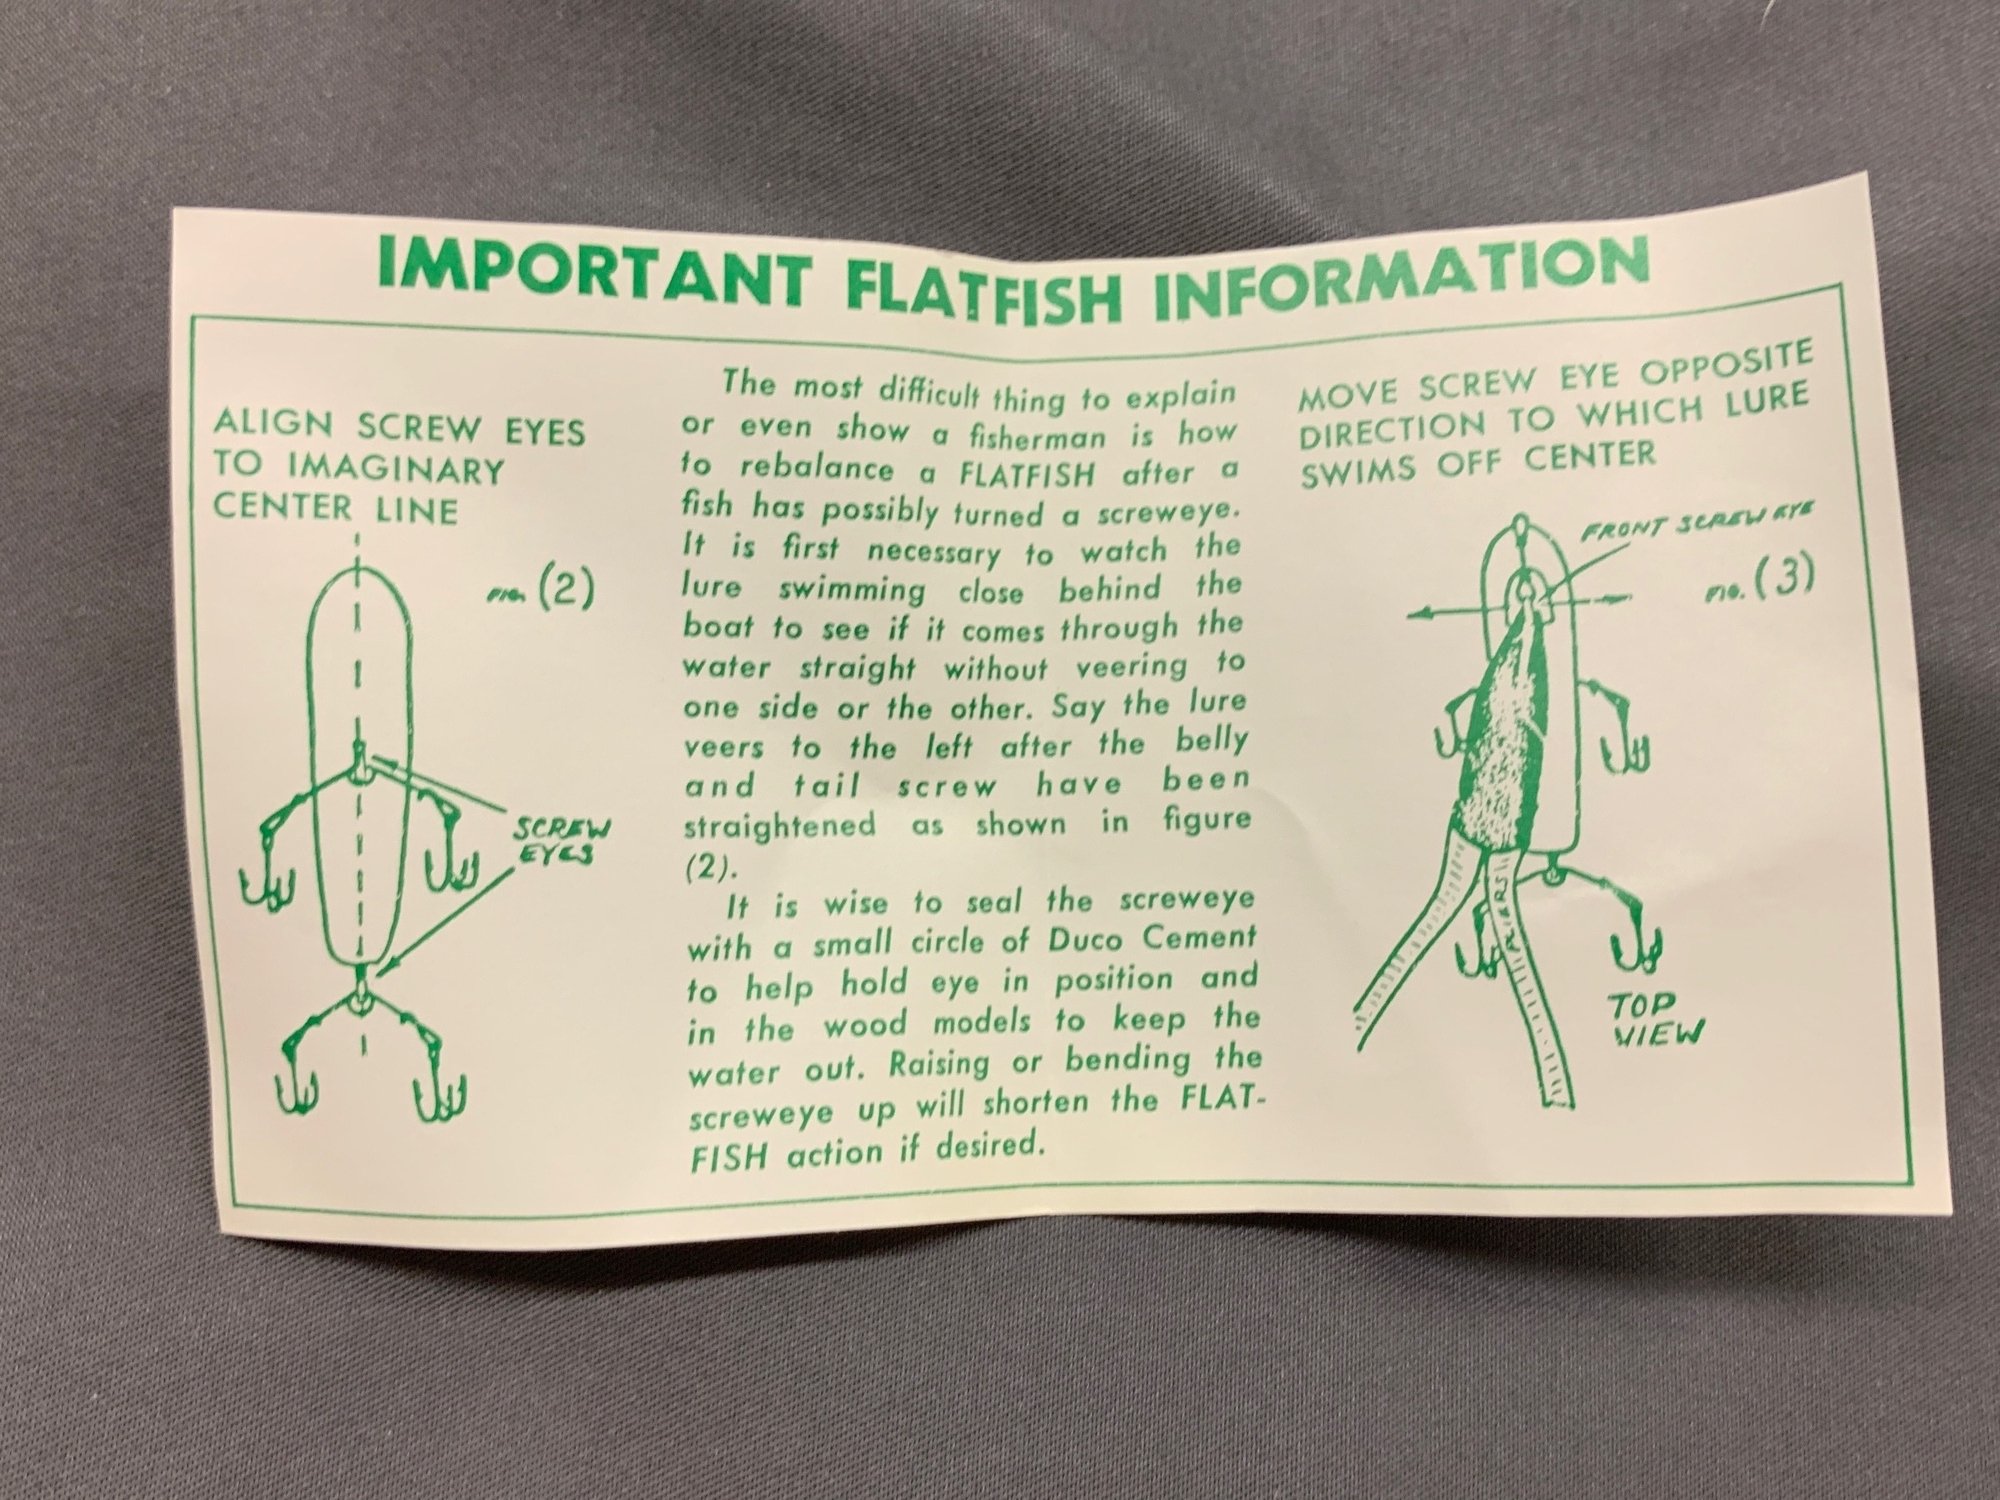 IMPORTANT FLATFISH INFORMATION
ALIGN SCREW EYES
TO IMAGINARY
CENTER LINE
FIG. (2)
SCREW
EYES
The most difficult thing to explain
or even show a fisherman is how
to rebalance a FLATFISH after a
fish has possibly turned a screweye.
It is first necessary to watch the
lure swimming close behind the
boat to see if it comes through the
water straight without veering to
one side or the other. Say the lure
veers to the left after the belly
and tail screw have been
straightened as shown in figure
(2).
It is wise to seal the screweye
with a small circle of Duco Cement
to help hold eye in position and
in the wood models to keep the
water out. Raising or bending the
screweye up will shorten the FLAT-
FISH action if desired.
MOVE SCREW EYE OPPOSITE
DIRECTION TO WHICH LURE
SWIMS OFF CENTER
FRONT SCREW EYE
FIG. (3)
PLIERS
TOP
VIEW